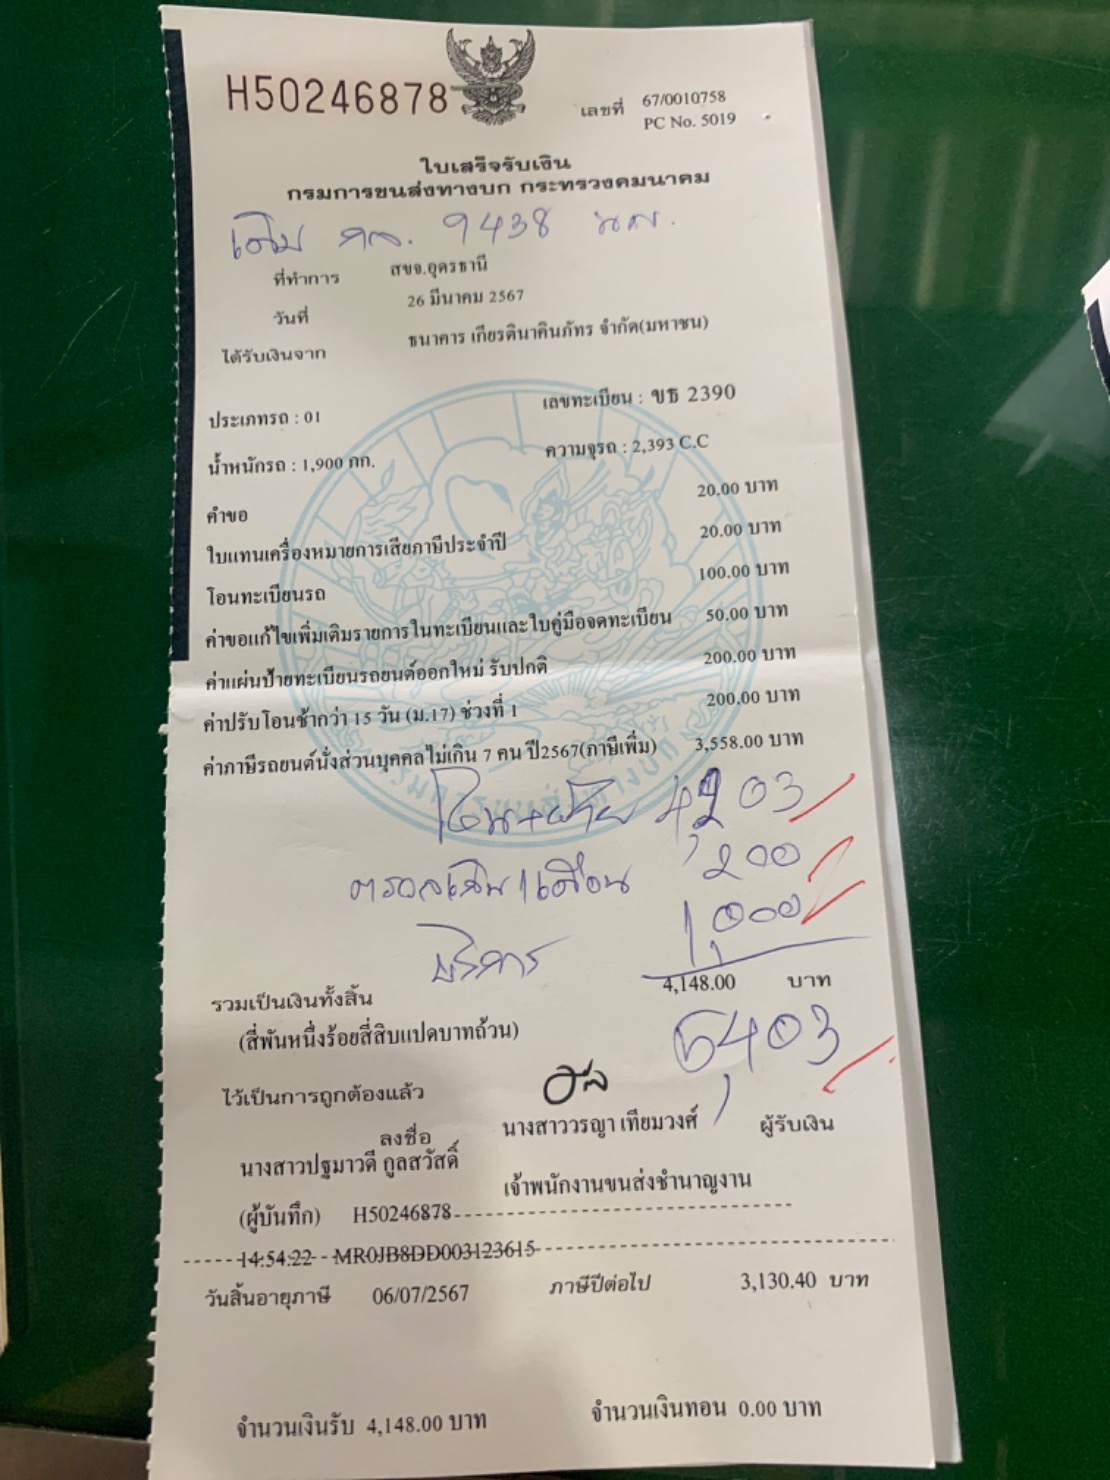 H50246878
เลขที่ 67/0010758
PC No. 5019
ใบเสร็จรับเงิน
กรมการขนส่งทางบก กระทรวงคมนาคม
เดิม กล. 9438 นม.
ที่ทำการ สขจ.อุดรธานี
วันที่ 26 มีนาคม 2567
ได้รับเงินจาก ธนาคาร เกียรตินาคินภัทร จำกัด(มหาชน)
ประเภทรถ : 01 เลขทะเบียน : ขธ 2390
น้ำหนักรถ : 1,900 กก. ความจุรถ : 2,393 C.C
คำขอ 20.00 บาท
ใบแทนเครื่องหมายการเสียภาษีประจำปี 20.00 บาท
โอนทะเบียนรถ 100.00 บาท
ค่าขอแก้ไขเพิ่มเติมรายการในทะเบียนและใบคู่มือจดทะเบียน 50.00 บาท
ค่าแผ่นป้ายทะเบียนรถยนต์ออกใหม่ รับปกติ 200.00 บาท
ค่าปรับโอนช้ากว่า 15 วัน (ม.17) ช่วงที่ 1 200.00 บาท
ค่าภาษีรถยนต์นั่งส่วนบุคคลไม่เกิน 7 คน ปี2567(ภาษีเพิ่ม) 3,558.00 บาท
กรมการขนส่งทางบก
โอน+ย้าย 4,203
200
บริการ 1,000
รวมเป็นเงินทั้งสิ้น 4,148.00 บาท
(สี่พันหนึ่งร้อยสี่สิบแปดบาทถ้วน)
5,403
ไว้เป็นการถูกต้องแล้ว
ลงชื่อ นางสาววรญา เทียมวงศ์ ผู้รับเงิน
นางสาวปฐมาวดี กูลสวัสดิ์
เจ้าพนักงานขนส่งชำนาญงาน
(ผู้บันทึก) H50246878
14:54:22 MR0JB8DD003123615
วันสิ้นอายุภาษี 06/07/2567 ภาษีปีต่อไป 3,130.40 บาท
จำนวนเงินรับ 4,148.00 บาท จำนวนเงินทอน 0.00 บาท